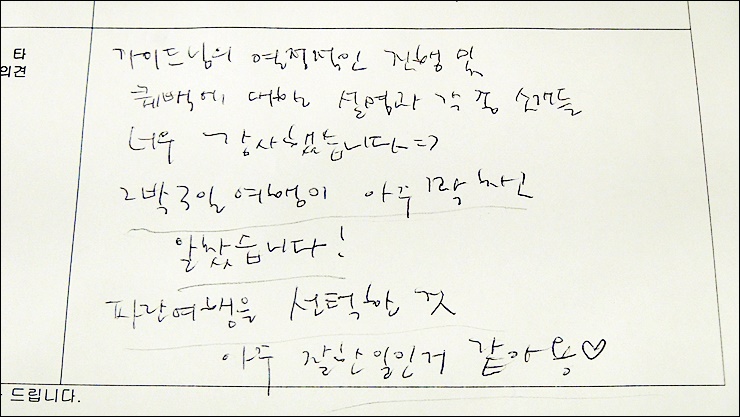 타
의견
가이드님의 열정적인 진행 및
퀘백에 대한 설명과 각종 소개들
너무 감사했습니다=>
2박 3일 여행이 아주 꽉 차고
알찼습니다!
파란여행을 선택한 것
아주 잘한 일인거 같아용♡
드립니다.